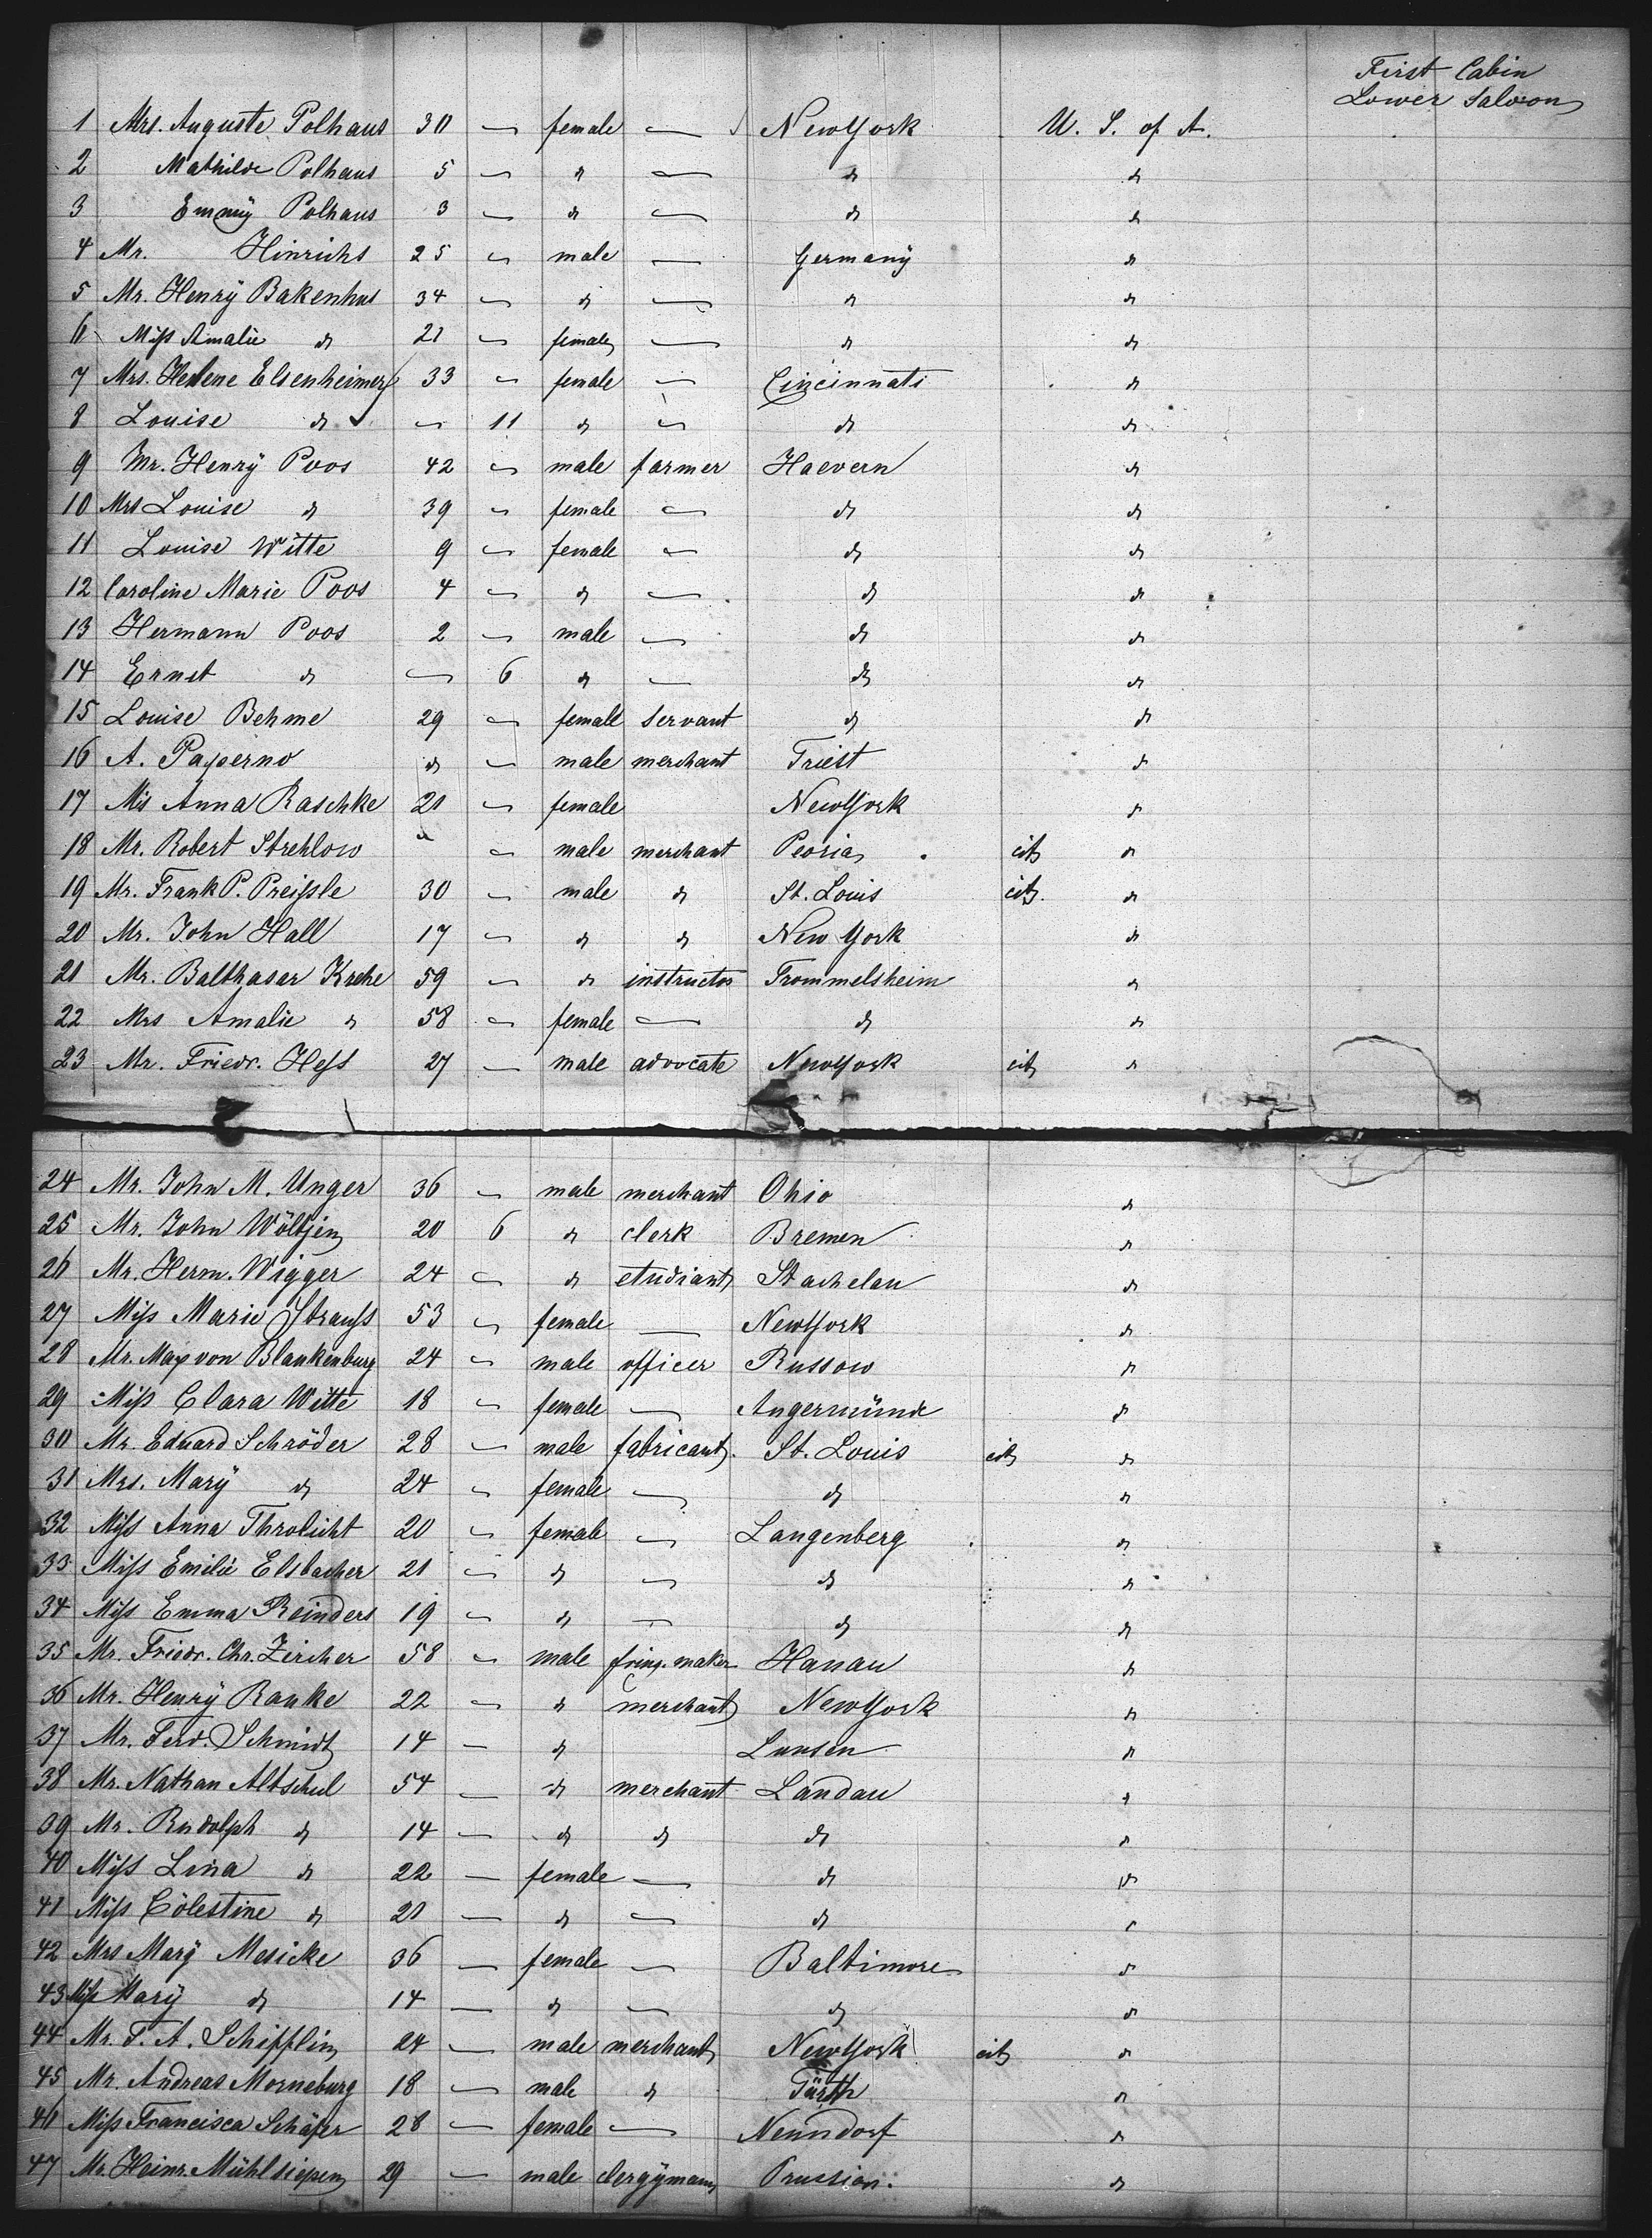 First Cabin
Lower Saloon
1 Mrs. Auguste Polhaus 30 — female — New York U. S. of A.
2 Mathilde Polhaus 5 — " — " "
3 Emmÿ Polhaus 3 — " — " "
4 Mr. Hinrichs 25 — male — Germanÿ "
5 Mr. Henrÿ Bakenhus 34 — " — " "
6 Miss Amalie " 21 — female — " "
7 Mrs. Helene Elsenheimer 33 — female — Cincinnati "
8 Louise " — 11 " — " "
9 Mr. Henrÿ Poos 42 — male farmer Haevern "
10 Mrs Louise " 39 — female — " "
11 Louise Witte 9 — female — " "
12 Caroline Marie Poos 4 — " — " "
13 Hermann Poos 2 — male — " "
14 Ernst " — 6 " — " "
15 Louise Behme 29 — female servant " "
16 A. Paperno " — male merchant Triest "
17 Mis Anna Raschke 21 — female New York "
18 Mr. Robert Strehlow " — male merchant Peoria cit "
19 Mr. Frank P. Preissle 30 — male " St. Louis cit. "
20 Mr. John Hall 17 — " " New York "
21 Mr. Balthasar Krehe 59 — " instructor Frommelsheim "
22 Mrs Amalie " 58 — female — " "
23 Mr. Friedr. Hess 27 — male advocate New York cit "
24 Mr. John M. Unger 36 — male merchant Ohio "
25 Mr. John Wöltjen 20 6 " clerk Bremen "
26 Mr. Herm. Wigger 24 — " etudiant Stachelau "
27 Miss Marie Strauss 53 — female — New York "
28 Mr. Max von Blankenburg 24 — male officer Russow "
29 Miss Clara Witte 18 — female — Angermünde "
30 Mr. Eduard Schröder 28 — male fabricant. St. Louis cit "
31 Mrs. Marÿ " 24 — female — " "
32 Miss Anna Throlicht 20 — female — Langenberg "
33 Miss Emilie Elsbacher 21 — " — " "
34 Miss Emma Reinders 19 — " — " "
35 Mr. Friedr. Chr. Zircher 58 — male fring. maker Hanau "
36 Mr. Henrÿ Ranke 22 — " merchant New York "
37 Mr. Ferd. Schmidt 14 — " Lunsen "
38 Mr. Nathan Altschul 54 — " merchant Landau "
39 Mr. Rudolph " 14 — " " " "
40 Miss Lina " 22 — female — " "
41 Miss Cölestine " 21 — " — " "
42 Mrs Marÿ Mesicke 36 — female — Baltimore "
43 Miss Marÿ " 14 — " — " "
44 Mr. F. A. Schifflin 24 — male merchant New York cit "
45 Mr. Andreas Morneburg 18 — male " Fürth "
46 Miss Francisca Schäfer 28 — female — Nenndorf "
47 Mr. Heinr. Mühlsiepen 29 — male clergÿman Prussian. "